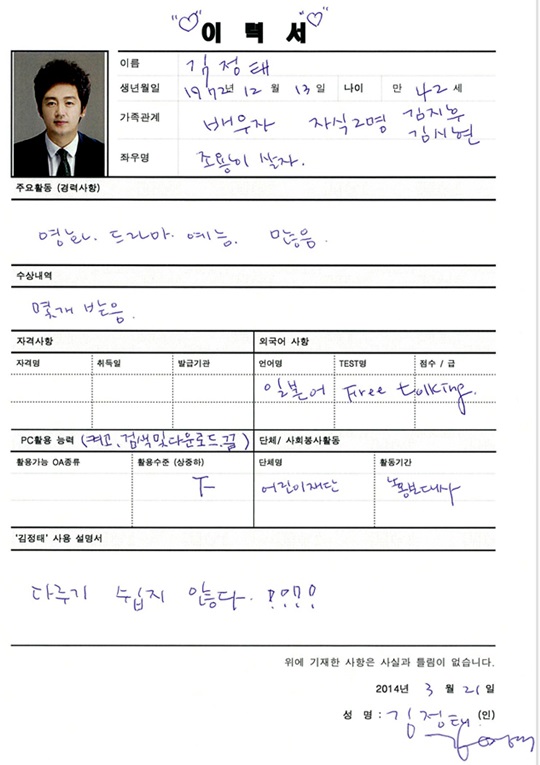 "♡" 이 력 서 "♡"
이름 김정태
생년월일 1972년 12 월 13 일 나이 만 42 세
가족관계 배우자 자식2명 김지후
김시현
좌우명 조용히 살자.
주요활동 (경력사항)
영화. 드라마. 예능. 많음.
수상내역
몇개 받음.
자격사항 외국어 사항
자격명 취득일 발급기관 언어명 TEST명 점수 / 급
일본어 Free talking.
PC활용 능력 (켜고, 검색및다운로드, 끌) 단체/ 사회봉사활동
활용가능 OA종류 활용수준 (상중하) 단체명 활동기간
下 어린이재단 홍보대사
'김정태' 사용 설명서
다루기 쉽지 않다. !!!!
위에 기재한 사항은 사실과 틀림이 없습니다.
2014년 3 월 21 일
성 명 : 김정태 (인)